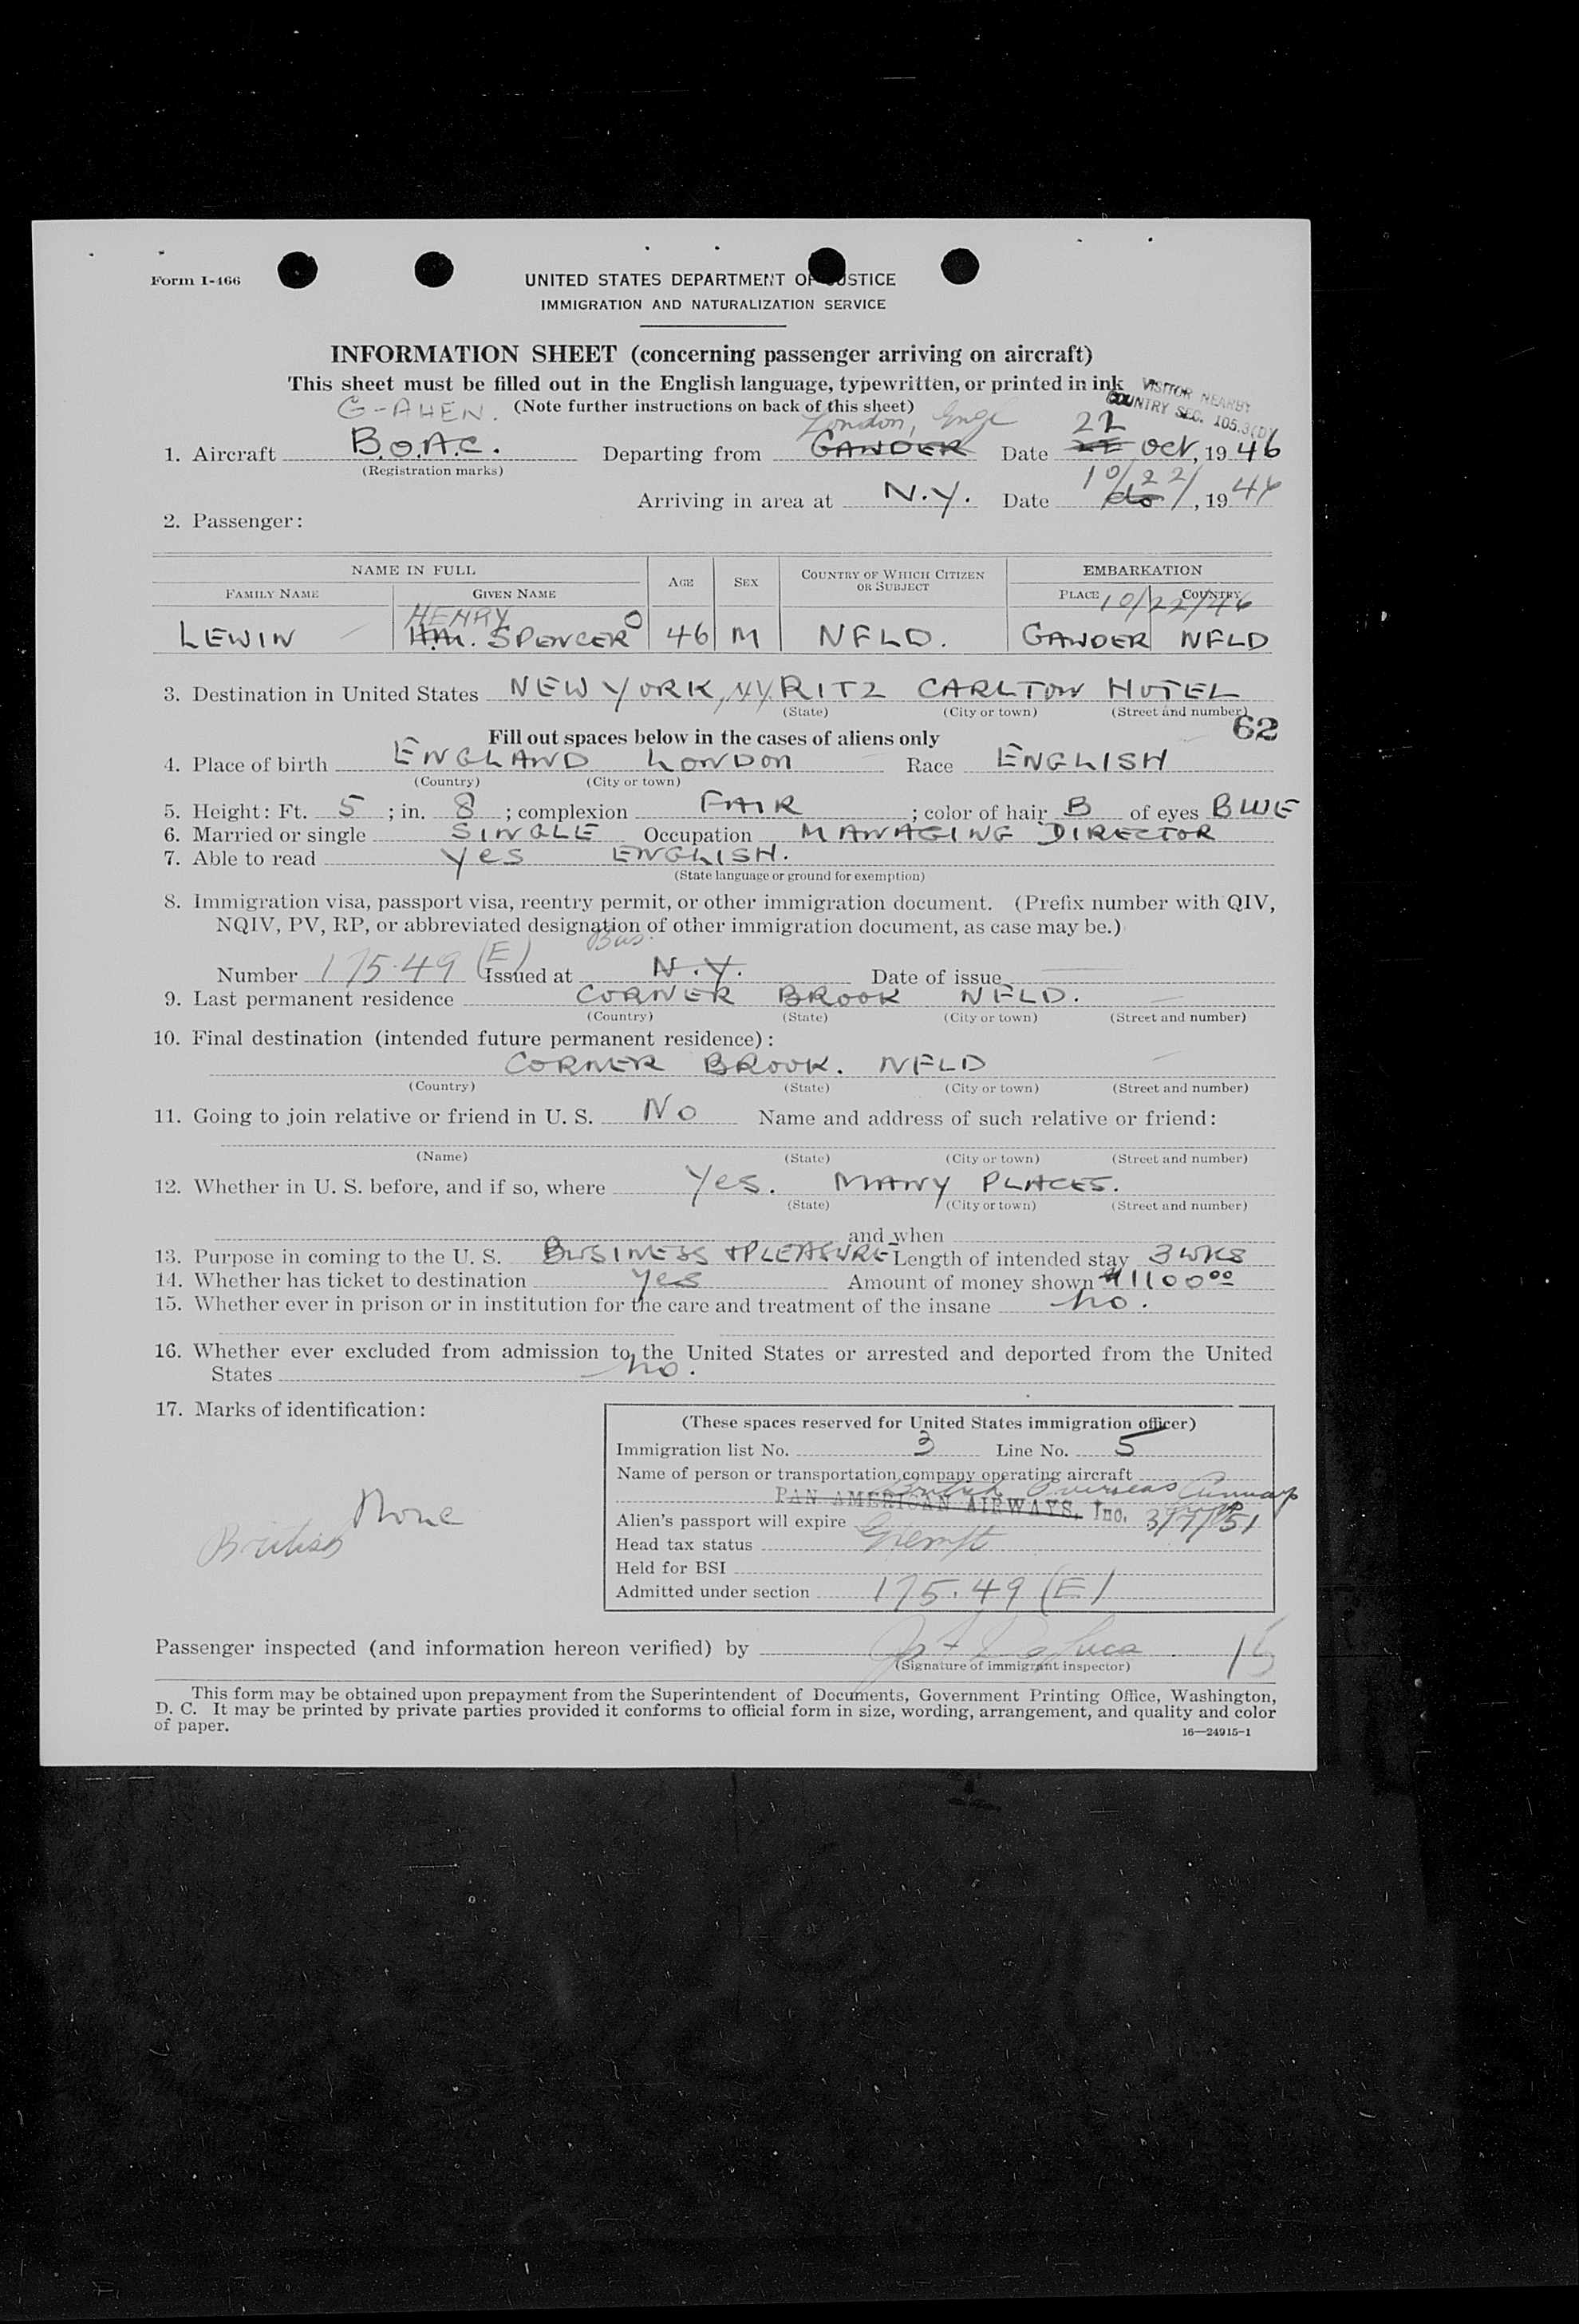 Form I-466
UNITED STATES DEPARTMENT OF JUSTICE
IMMIGRATION AND NATURALIZATION SERVICE
INFORMATION SHEET (concerning passenger arriving on aircraft)
This sheet must be filled out in the English language, typewritten, or printed in ink
VISITOR NEARBY
COUNTRY SEC. 105.3(D)
G-AHEN. (Note further instructions on back of this sheet)
London, Engl 22
1. Aircraft B.O.A.C. Departing from GANDER Date Oct, 1946
(Registration marks)
10/22/
Arriving in area at N.Y. Date do, 1946
2. Passenger:
NAME IN FULL AGE SEX COUNTRY OF WHICH CITIZEN OR SUBJECT EMBARKATION
FAMILY NAME GIVEN NAME PLACE COUNTRY
HENRY 10/22/46
LEWIN H.M. SPENCER 46 M NFLD. GANDER NFLD
3. Destination in United States NEW YORK, N.Y. RITZ CARLTON HOTEL
(State) (City or town) (Street and number)
62
Fill out spaces below in the cases of aliens only
4. Place of birth ENGLAND LONDON Race ENGLISH
(Country) (City or town)
5. Height: Ft. 5; in. 8; complexion FAIR; color of hair B of eyes BLUE
6. Married or single SINGLE Occupation MANAGING DIRECTOR
7. Able to read Yes ENGLISH.
(State language or ground for exemption)
8. Immigration visa, passport visa, reentry permit, or other immigration document. (Prefix number with QIV,
NQIV, PV, RP, or abbreviated designation of other immigration document, as case may be.)
Bus.
Number 175.49 (E) Issued at N.Y. Date of issue
9. Last permanent residence CORNER BROOK NFLD.
(Country) (State) (City or town) (Street and number)
10. Final destination (intended future permanent residence):
CORNER BROOK. NFLD
(Country) (State) (City or town) (Street and number)
11. Going to join relative or friend in U. S. No Name and address of such relative or friend:
(Name) (State) (City or town) (Street and number)
12. Whether in U. S. before, and if so, where Yes. MANY PLACES.
(State) (City or town) (Street and number)
and when
13. Purpose in coming to the U. S. BUSINESS & PLEASURE Length of intended stay 3 WKS
14. Whether has ticket to destination Yes Amount of money shown $1100 00
15. Whether ever in prison or in institution for the care and treatment of the insane No.
16. Whether ever excluded from admission to the United States or arrested and deported from the United
States No.
17. Marks of identification:
None
British
(These spaces reserved for United States immigration officer)
Immigration list No. 3 Line No. 5
Name of person or transportation company operating aircraft
British Overseas Airways
PAN AMERICAN AIRWAYS, Inc.
Alien's passport will expire 3/7/51
Head tax status Exempt
Held for BSI
Admitted under section 175.49 (E)
Passenger inspected (and information hereon verified) by
(Signature of immigrant inspector)
This form may be obtained upon prepayment from the Superintendent of Documents, Government Printing Office, Washington,
D. C. It may be printed by private parties provided it conforms to official form in size, wording, arrangement, and quality and color
of paper.
16—24915-1